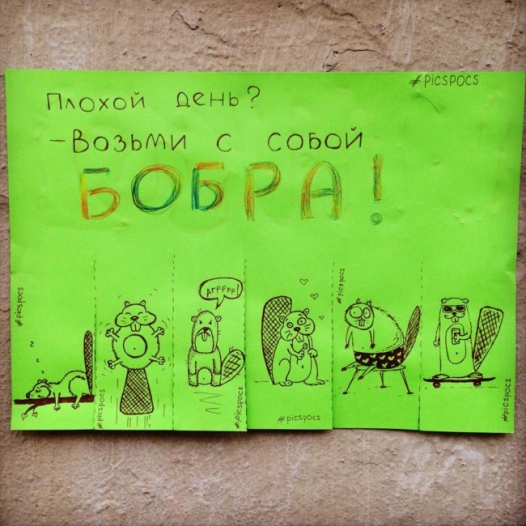 #PICSPOCS
Плохой день?
-Возьми с собой
БОБРА!
#picspocs
#picspocs
Агрррр!
#picspocs
#picspocs
#picspocs
#picspocs
z z